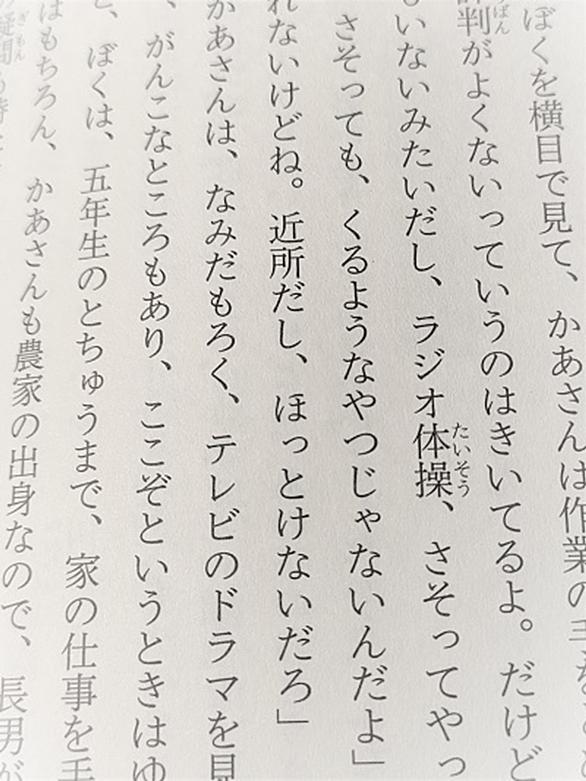 ぼくを横目で見て、かあさんは作業の
判がよくないっていうのはきいてるよ。だけど
いないみたいだし、ラジオ体操、さそってやっ
さそっても、くるようなやつじゃないんだよ」
れないけどね。近所だし、ほっとけないだろ」
かあさんは、なみだもろく、テレビのドラマを見
、がんこなところもあり、ここぞというときはゆ
、ぼくは、五年生のとちゅうまで、家の仕事を手
はもちろん、かあさんも農家の出身なので、長男が
疑問